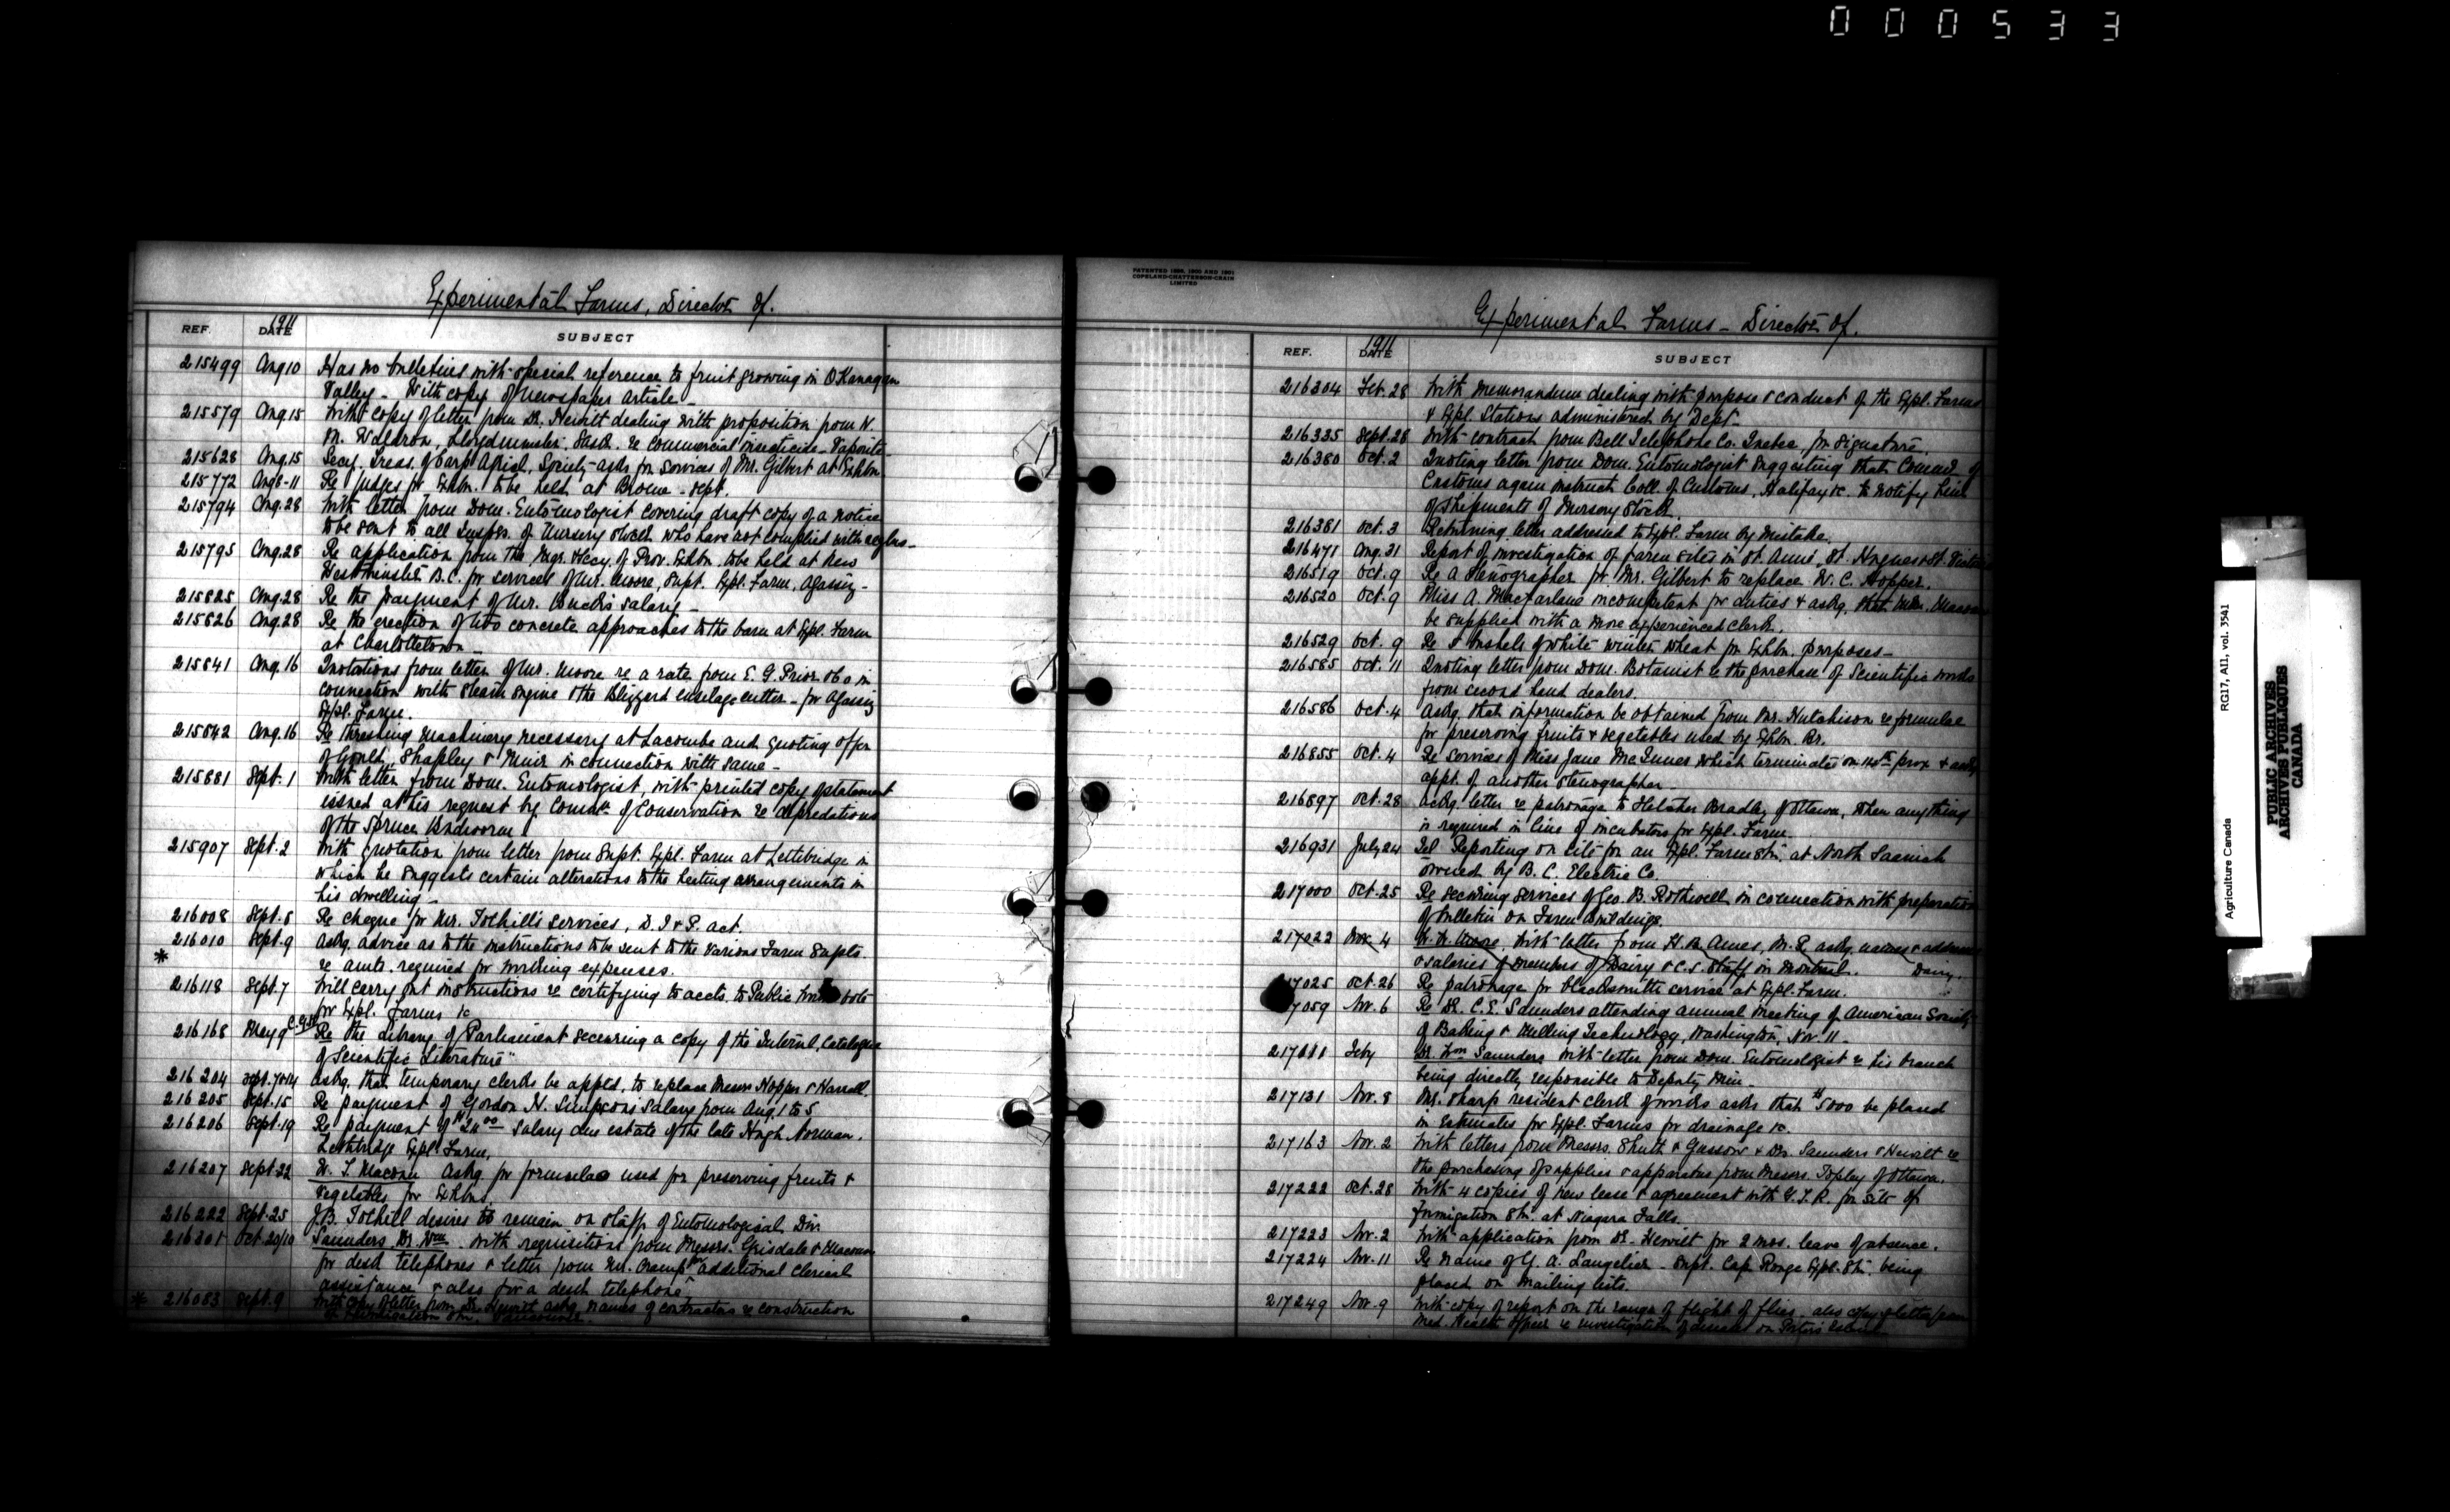 000533
Experimental Farms, Director of.
REF. DATE 1911 SUBJECT
215499 Aug 10 Has no bulletins with special reference to fruit growing in OKanagan
Valley - With copy of newspaper article -
215579 Aug 15 With copy of letter from Dr. Hewitt dealing with proposition from N.
M. Waldron, Lloydminster, Sask. re commercial insecticide - Vaporite -
215628 Aug. 15 Secy. Treas. of Carp Agricl. Society asks for services of Mr. Gilbert at Exhbn.
215772 Aug 8-11 Re judges for Exhbn. to be held at Brome - Sept.
215794 Aug. 28 With letter from Dom. Entomologist covering draft copy of a notice
to be sent to all Imptrs. of Nursery Stock who have not complied with reglns -
215795 Aug. 28 Re application from the Mgr. & Secy. of Prov. Exhbn. to be held at New
Westminster B.C. for services of Mr. Moore, Supt. Expl. Farm, Agassiz -
215825 Aug. 28 Re the payment of Mr. Buck's salary -
215826 Aug. 28 Re the erection of two concrete approaches to the barn at Expl. Farm
at Charlottetown -
215841 Aug. 16 Quotations from letter of Mr. Moore re a rate from E. G. Prior & Co in
connection with steam engine & the Blizzard ensilage cutter - for Agassiz
Expl. Farm.
215842 Aug. 16 Re threshing machinery necessary at Lacombe and quoting offer
of Goold, Shapley & Muir in connection with same -
215881 Sept. 1 With letter from Dom. Entomologist, with printed copy of statement
issued at his request by Commn of Conservation re depredations
of the Spruce Budworm
215907 Sept. 2 With quotation from letter from Supt. Expl. Farm at Lethbridge in
which he suggests certain alterations to the heating arrangements in
his dwelling -
216008 Sept. 6 Re cheque for Mr. Tothill's services, D. I & P. act.
216010 Sept. 9 Askg. advice as to the instructions to be sent to the various Farm Supts.
* re amts. required for working expenses.
216118 Sept. 7 Will carry out instructions re certifying to accts. to Public Works
for Expl. Farms &c
216168 May 9 Re the Library of Parliament securing a copy of the "Internl. Catalogue
of Scientific Literature"
216204 Sept. 7&14 Askg. that temporary clerks be apptd. to replace Messrs Hopper & Harrell.
216205 Sept. 15 Re payment of Gordon N. Simpson's salary from Aug. 1 to 5
216206 Sept. 19 Re payment of salary due estate of the late Hugh Norman.
Lethbridge Expl. Farm.
216207 Sept. 22 W. T. Macoun askg. for formulae used for preserving fruits &
vegetables for Exhbns.
216222 Sept. 25 J. B. Tothill desires to remain on staff of Entomological Div.
216301 Oct. 20/10 Saunders, Dr. Wm. with requisitions from Messrs. Grisdale & Macoun
for desk telephones & letter from Mr. for additional clerical
assistance & also for a desk telephone
* 216083 Sept. 9 With copy of letter from Dr. Hewitt askg. names of contractors re construction
of Fumigation Stn. Vancouver.
PATENTED 1898, 1900 AND 1901
COPELAND-CHATTERSON-CRAIN
LIMITED
Experimental Farms - Director of.
REF. DATE 1911 SUBJECT
216304 Feb. 28 With memorandum dealing with purpose & conduct of the Expl. Farms
& Expl. Stations administered by Dept -
216335 Sept. 28 With contract from Bell Telephone Co. Quebec for signature.
216380 Oct. 2 Quoting letter from Dom. Entomologist suggesting that Commr. of
Customs again instruct Coll. of Customs, Halifax &c. to notify him
of shipments of Nursery Stock.
216381 Oct. 3 Returning letter addressed to Expl. Farm by mistake.
216471 Aug. 31 Report of investigation of farm sites in St. Anne, St. Hugues & St.
216519 Oct. 9 Re a stenographer for Mr. Gilbert to replace W. C. Hopper.
216520 Oct. 9 Miss A. Macfarlane incompetent for duties & askg. that Mr. Macoun
be supplied with a more experienced clerk.
216529 Oct. 9 Re bushels of white winter wheat for Exhbn. purposes -
216585 Oct. 11 Quoting letter from Dom. Botanist re the purchase of Scientific works
from second hand dealers.
216586 Oct. 4 Askg. that information be obtained from Mr. Hutchison re formulae
for preserving fruits & vegetables used by Exhbn. Br.
216855 Oct. 4 Re services of Miss Jane McInnes which terminates on 14th prox. & askg.
appt. of another Stenographer
216897 Oct. 28 Ackg. letter re patronage to Fletcher Bradley of Ottawa, when anything
is required in line of incubators for Expl. Farm.
216931 July 24 Tel Reporting on site for an Expl. Farm Stn. at North Saanich
owned by B. C. Electric Co.
217000 Oct. 25 Re securing services of Geo. B. Rothwell in connection with preparation
of bulletin on Farm Buildings.
217022 Nov. 4 W. W. Moore, With letter from H. B. Ames, M.P. askg. names & addresses
& salaries of members of Dairy & C.S. Staff in Montreal. Dairy.
17025 Oct. 26 Re patronage for blacksmith service at Expl. Farm.
17059 Nov. 6 Re Dr. C. E. Saunders attending annual meeting of American Society
of Baking & Milling Technology, Washington, Nov. 11 -
217011 July Dr. Wm Saunders with letter from Dom. Entomologist re his branch
being directly responsible to Deputy Min -
217131 Nov. 8 Mr. Sharp resident clerk of works asks that $5000 be placed
in Estimates for Expl. Farms for drainage &c.
217163 Nov. 2 With letters from Messrs. Shutt & Gussow & Drs. Saunders & Hewitt re
the purchasing of supplies & apparatus from Messrs. Topley of Ottawa.
217222 Oct. 28 With 4 copies of new lease & agreement with G.T.R. for site of
Fumigation Stn. at Niagara Falls.
217223 Nov. 2 With application from Dr. Hewitt for 2 mos. leave of absence.
217224 Nov. 11 Re name of G. A. Langelier - Supt. Cap Rouge Expl. Stn. being
placed on mailing lists.
217249 Nov. 9 With copy of report on the range of flight of flies - also copy of letter from
Med. Health Officer re investigation of disease on Porters Island -
Agriculture Canada RG17, A11, vol. 3541
PUBLIC ARCHIVES
ARCHIVES PUBLIQUES
CANADA